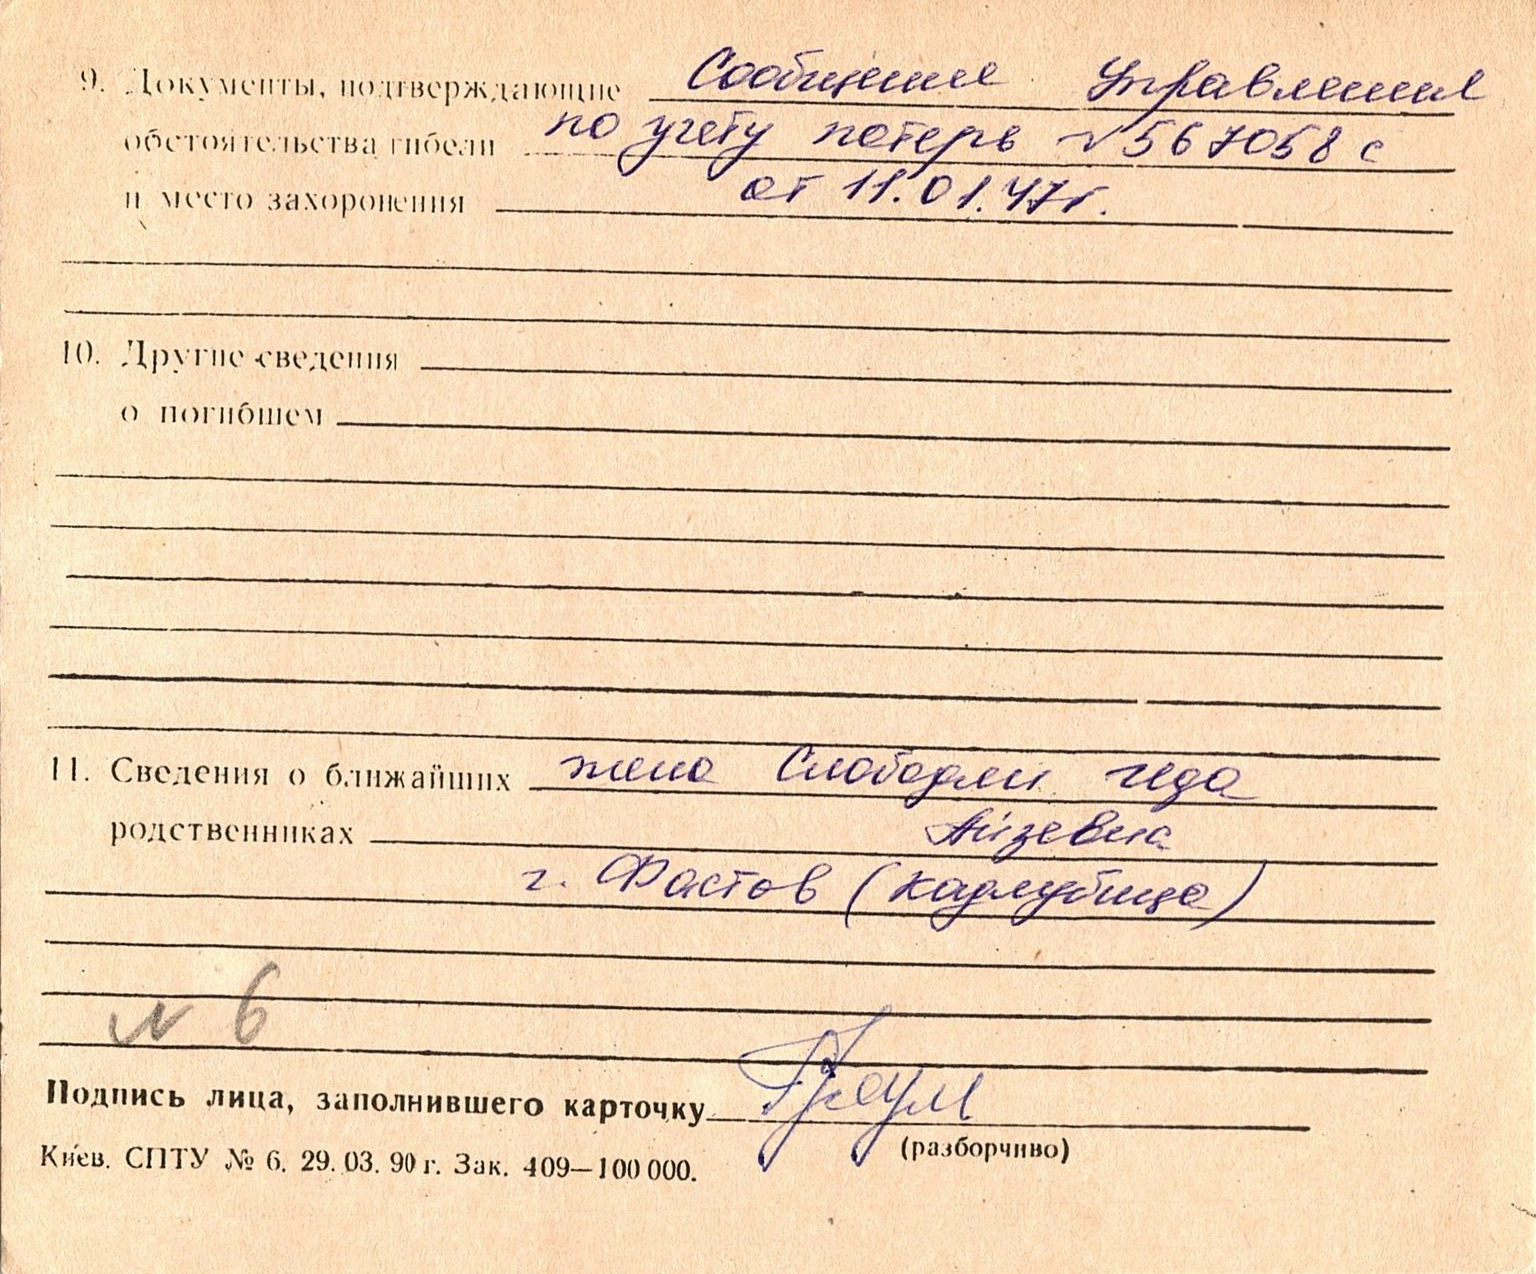 9. Документы, подтверждающие Сообщение Управления
обстоятельства гибели по учету потерь № 567058 с
и место захоронения от 11.01.47г.
10. Другие сведения
о погибшем
11. Сведения о ближайших жена Слободян Геда
родственниках Айзевна
г. Фастов (Кадлубица)
№ 6
Подпись лица, заполнившего карточку
(разборчиво)
Киев. СПТУ № 6. 29. 03. 90 г. Зак. 409—100 000.